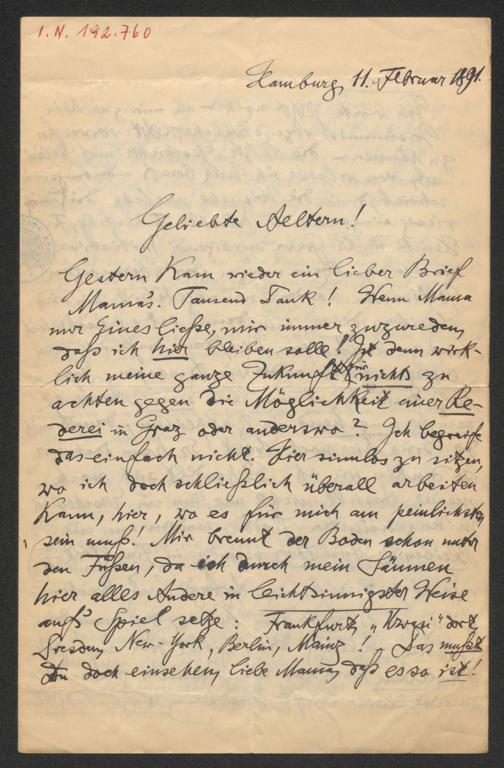 I.N. 192.760
Hamburg, 11. Februar 1891.
Geliebte Aeltern!
Gestern kam wieder ein lieber Brief
Mama's. Tausend Dank! Wenn Mama
nur Eines ließe, mir immer zuzureden,
daß ich hier bleiben solle! Ist denn wirk-
lich meine ganze Zukunft für nichts zu
achten gegen die Möglichkeit einer Re-
derei in Graz oder anderswo? Ich begreife
das einfach nicht. Hier sinnlos zu sitzen,
wo ich doch schließlich überall arbeiten
kann, hier, wo es für mich am peinlichsten
sein muß! Mir brennt der Boden schon unter
den Füßen, da ich durch mein Säumen
hier alles Andere in leichtsinnigster Weise
auf's Spiel setze: Frankfurt, dort
Dresden, New-York, Berlin, Mainz! Das mußt
Du doch einsehen, liebe Mama, daß es so ist!